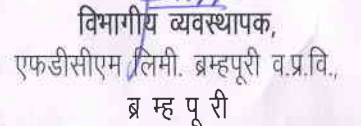 विभागीय व्यवस्थापक,
एफडीसीएम लिमी. ब्रम्हपूरी व.प्र.वि.,
ब्र म्ह पू री